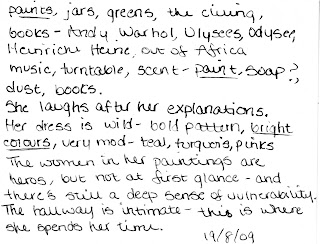 paints, jars, greens, the living,
books - Andy Warhol, Ulysees, Odyssey,
Heinrich Heine, out of Africa
music, turntable, scent - paint, soap?,
dust, books.
She laughs after her explanations.
Her dress is wild - bold pattern, bright
colours, very mod - teal, turquois, pinks
The women in her paintings are
heros, but not at first glance - and
there's still a deep sense of vulnerability.
The hallway is intimate - this is where
she spends her time.
19/8/09